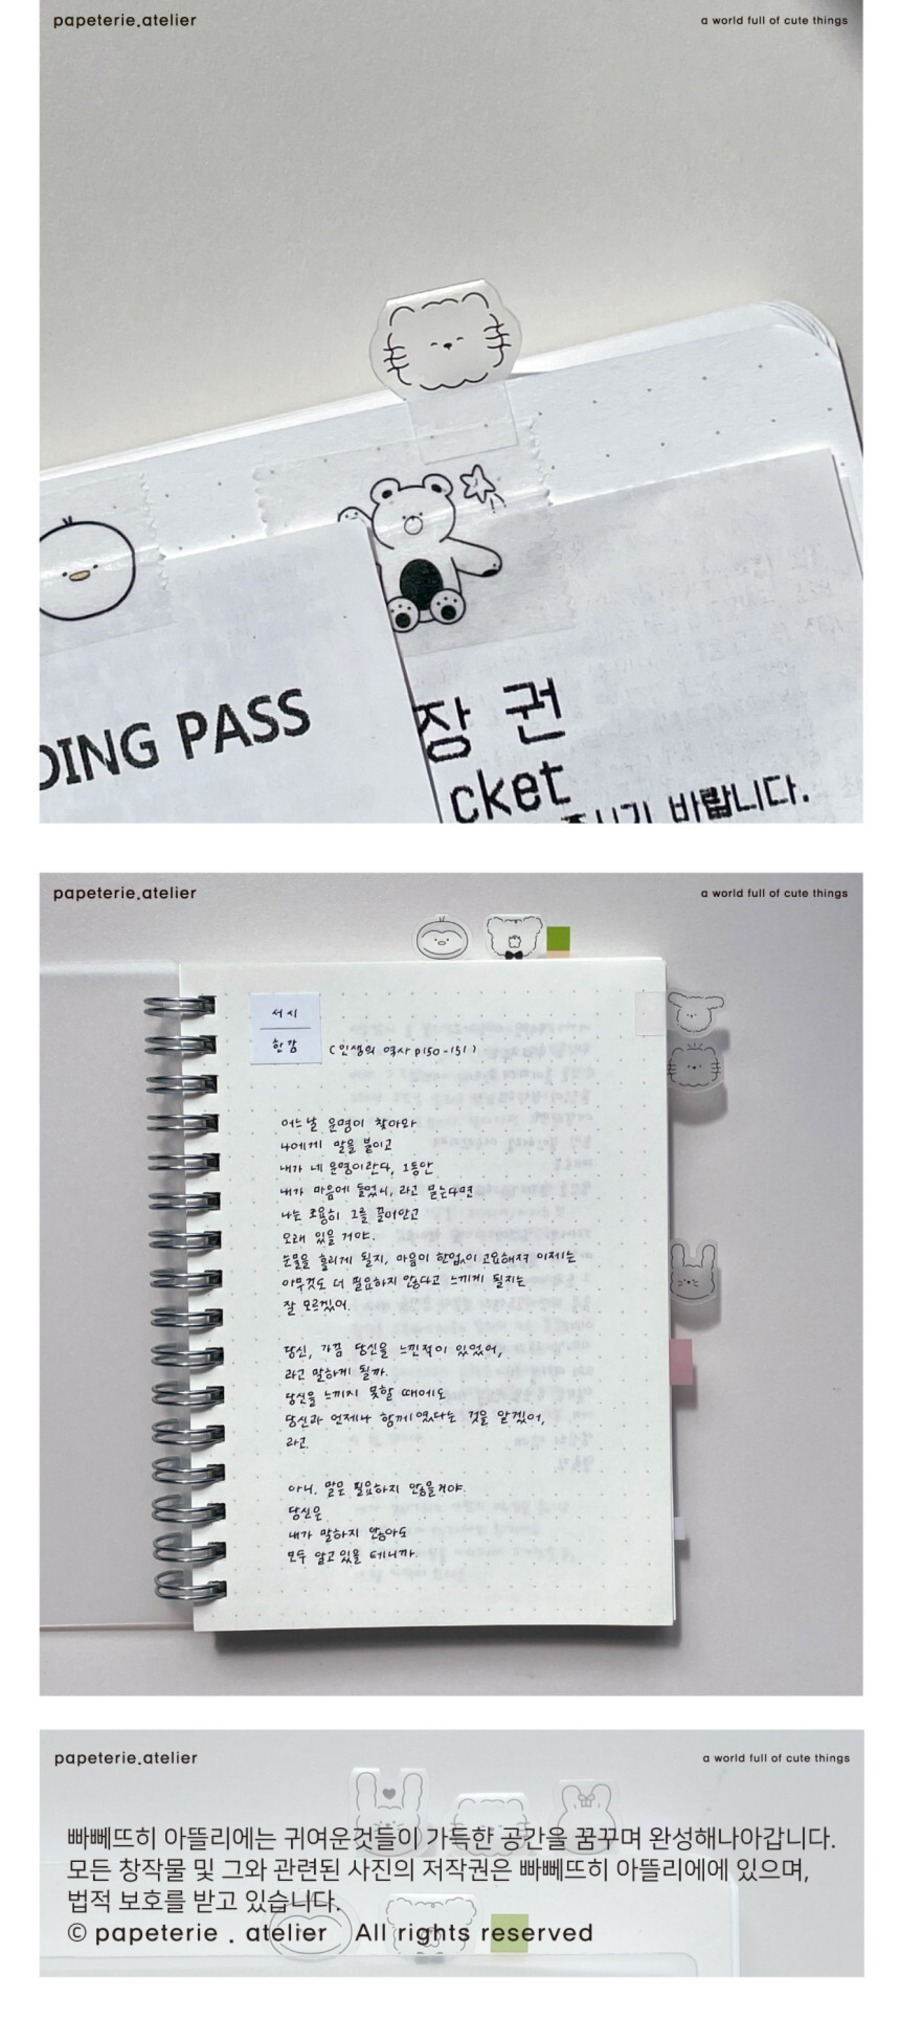 papeterie.atelier
a world full of cute things
DING PASS
장 권
cket
주시기 바랍니다.
papeterie.atelier
a world full of cute things
서시
한강
(인생의 역사 p150-151)
어느날 운명이 찾아와
나에게 말을 붙이고
내가 네 운명이란다, 그동안
내가 마음에 들었니, 라고 묻는다면
나는 조용히 그를 끌어안고
오래 있을 거야.
눈물을 흘리게 될지, 마음이 한없이 고요해져 이제는
아무것도 더 필요하지 않다고 느끼게 될지는
잘 모르겠어.
당신, 가끔 당신을 느낀적이 있었어,
라고 말하게 될까.
당신을 느끼지 못할 때에도
당신과 언제나 함께였다는 것을 알겠어,
라고.
아니, 말은 필요하지 않을거야.
당신은
내가 말하지 않아도
모두 알고있을 테니까.
papeterie.atelier
a world full of cute things
빠뻬뜨히 아뜰리에는 귀여운것들이 가득한 공간을 꿈꾸며 완성해나아갑니다.
모든 창작물 및 그와 관련된 사진의 저작권은 빠뻬뜨히 아뜰리에에 있으며,
법적 보호를 받고 있습니다.
© papeterie . atelier All rights reserved